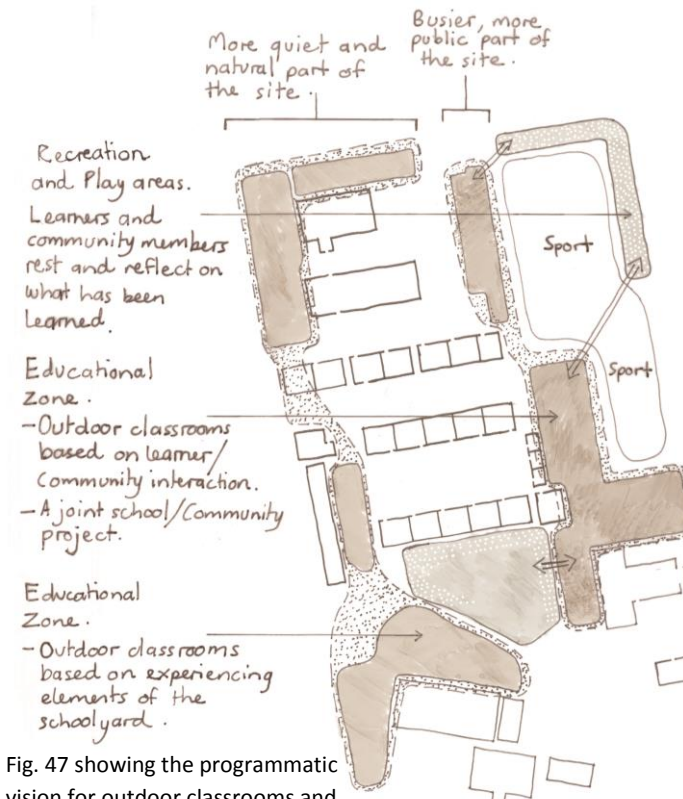 More quiet and
natural part of
the site.
Busier, more
public part of
the site.
Recreation
and Play areas.
Learners and
community members
rest and reflect on
what has been
learned.
Sport
Sport
Educational
Zone.
-Outdoor classrooms
based on learner/
Community interaction.
-A joint school/Community
project.
Educational
Zone.
-Outdoor classrooms
based on experiencing
elements of the
schoolyard.
Fig. 47 showing the programmatic
vision for outdoor classrooms and